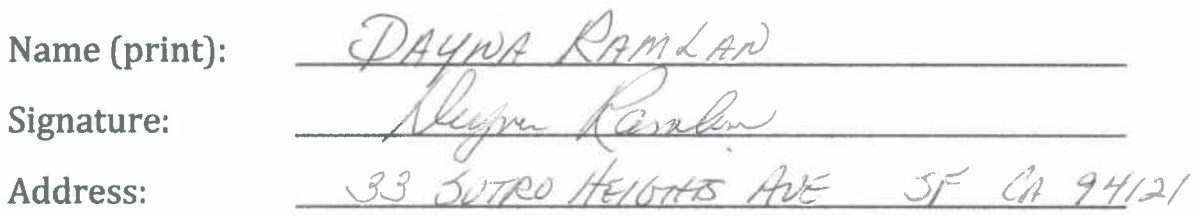 Name (print): DAYNA RAMLAN
Signature: Dayna Ramlan
Address: 33 SUTRO HEIGHTS AVE SF CA 94121